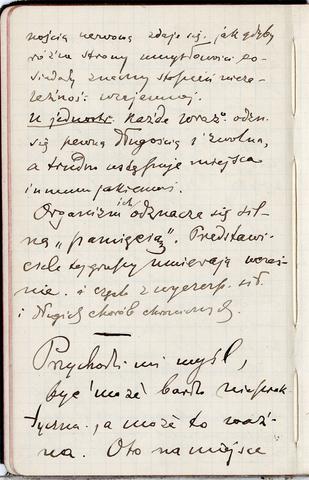 nością nerwową zdaje się, jak gdyby
różne strony umysłowości po-
siadały znaczny stopień nieza-
leżności wzajemnej.
U jednostr. każde wraż. odzn.
się pewną długością i zwolna,
a trudno ustępuje miejsca
innemu jakiemuś.
Organizm ich odznacza się sil-
ną „pamięcią". Przedstawi-
ciele tej grupy umierają wcześ-
nie. i często z wyczerp. sił.
i długich chorób chronicznych.
Przychodzi mi myśl,
być może bardzo nieprak-
tyczna, a może to waż-
na. Oto na miejsce